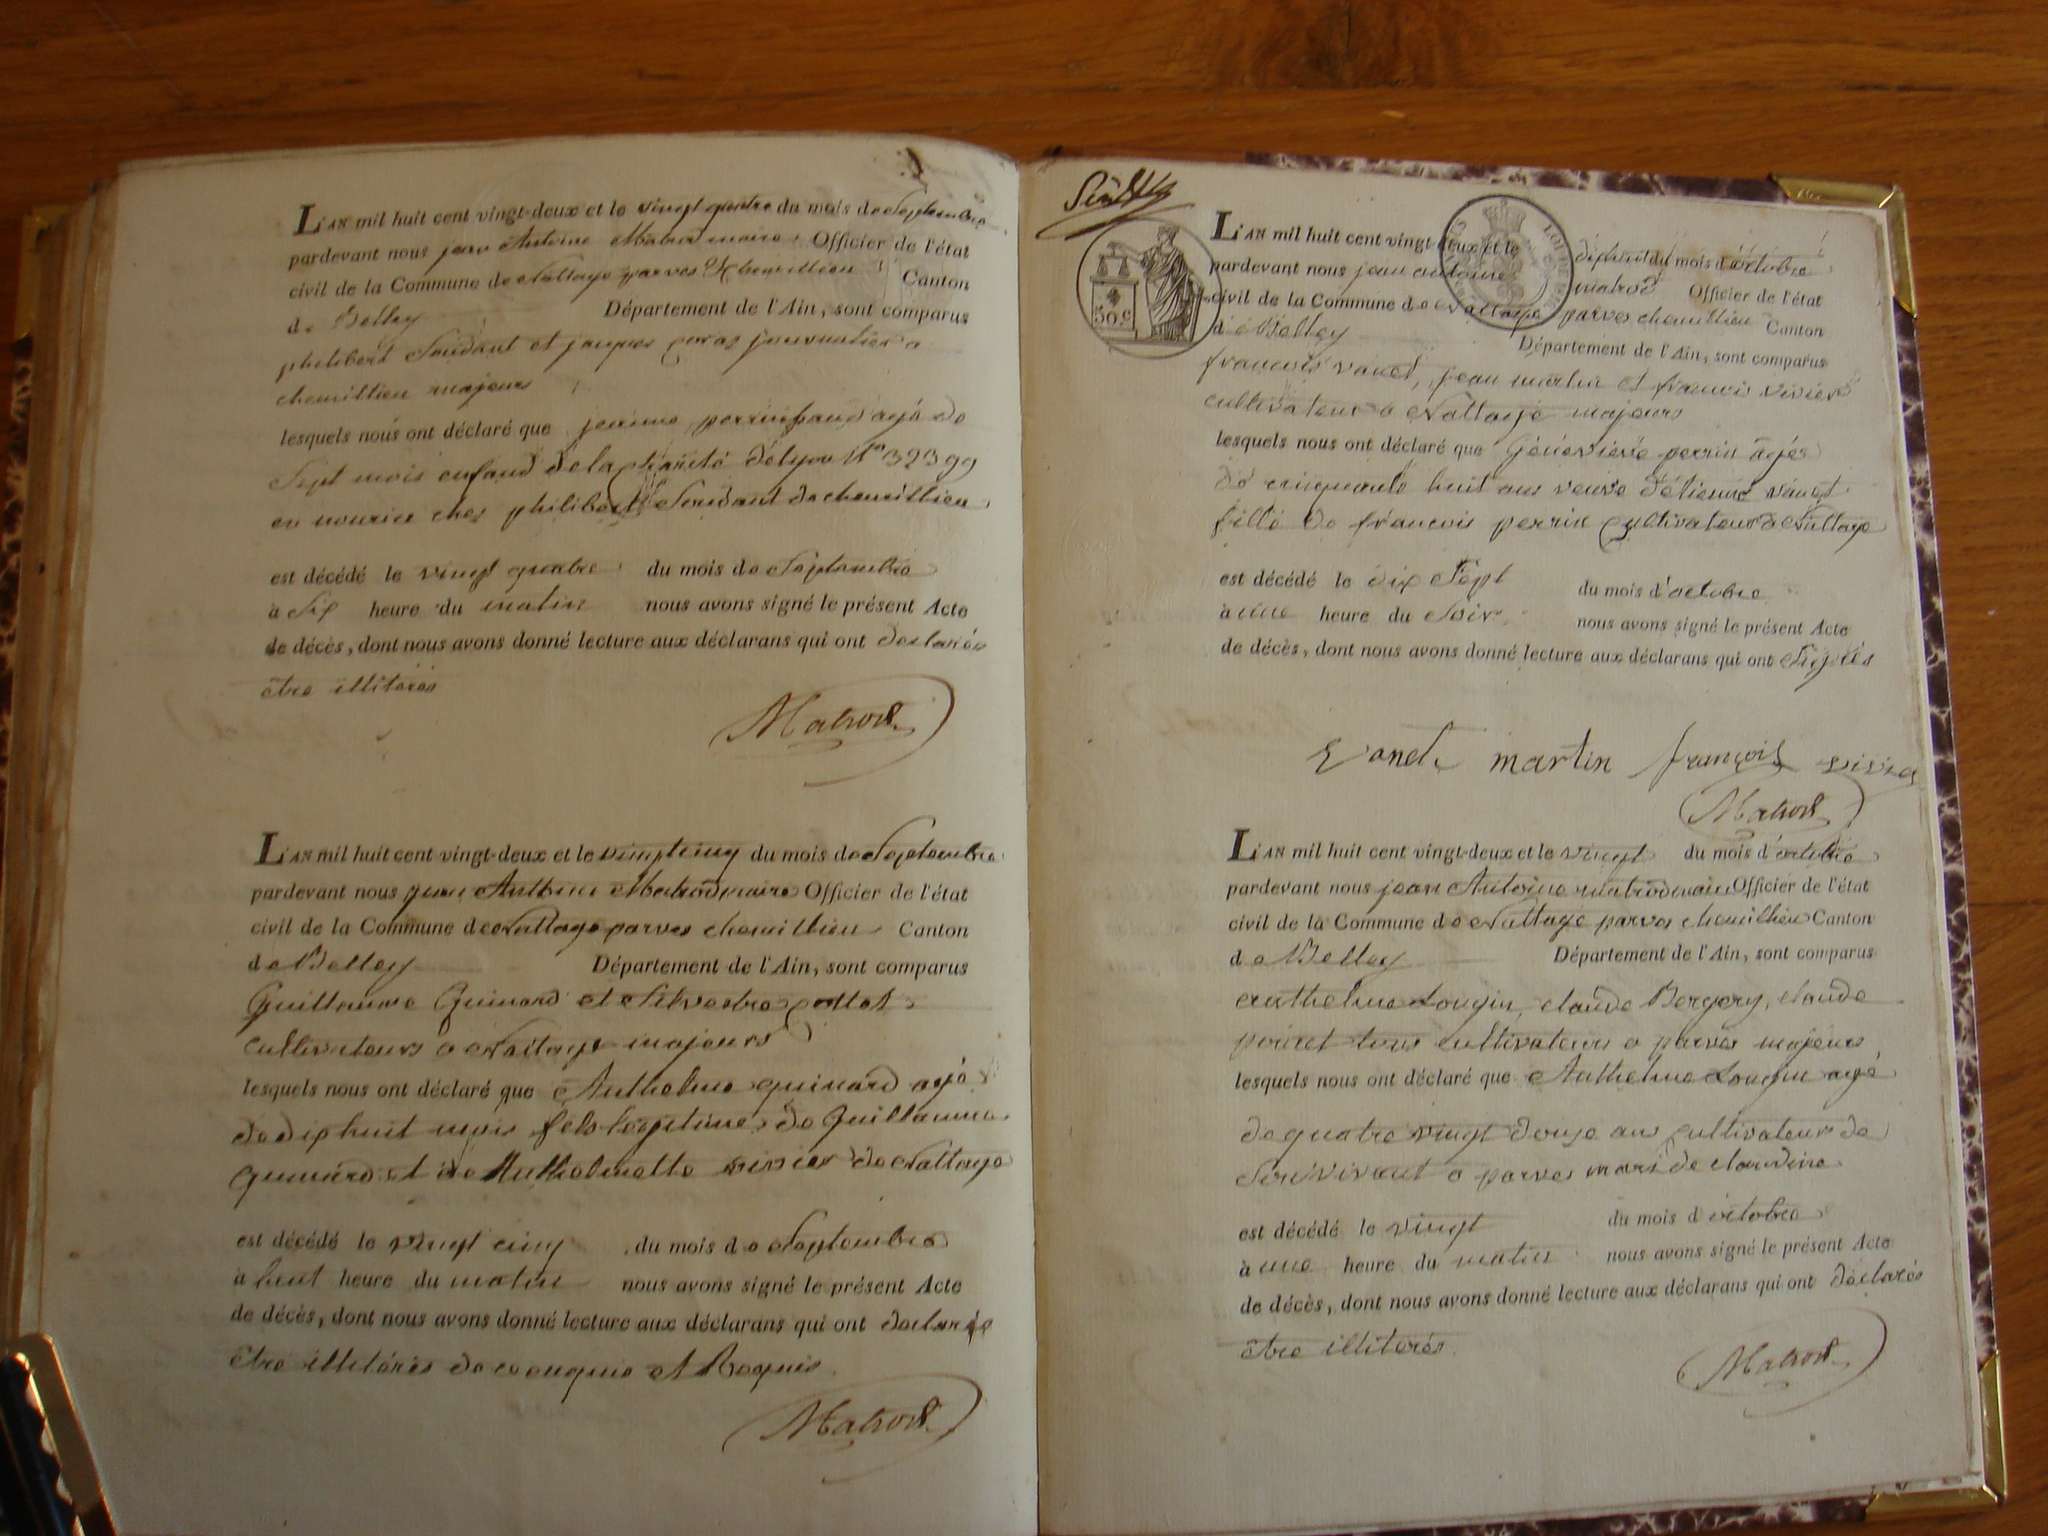 L'AN mil huit cent vingt-deux et le vingt quatre du mois de Septembre
pardevant nous jean Antoine Matrod maire Officier de l'état
civil de la Commune de Nattage parves Chemillieu Canton
de Belley Département de l'Ain, sont comparus
philibert Soudant et jacques journalier a
chemillieu majeurs
lesquels nous ont déclaré que agé de
Sept mois enfand de la charité de lyon Nº 32399
en nourice chez philibert Soudant de chemillieu
est décédé le vingt quatre du mois de Septembre
à Six heure du matin nous avons signé le présent Acte
de décès, dont nous avons donné lecture aux déclarans qui ont declarés
être illiterés
Matrod
L'AN mil huit cent vingt-deux et le vingt cinq du mois de Septembre
pardevant nous jean Anthoine Matrod maire Officier de l'état
civil de la Commune de Nattage parves chemillieu Canton
de Belley Département de l'Ain, sont comparus
Guillaume Guinard et Silvestre
cultivateurs a Nattage majeurs
lesquels nous ont déclaré que Anthelme guinard agé
de dix huit mois fils legitime de Guillaume
guinard et de Anthelmette vivier de Nattage
est décédé le vingt cinq du mois de Septembre
à huit heure du matin nous avons signé le présent Acte
de décès, dont nous avons donné lecture aux déclarans qui ont declarés
être illiterés de ce enquis et Requis
Matrod
50 c
L'AN mil huit cent vingt-deux et le dix huit du mois d'octobre
pardevant nous jean antoine matrod Officier de l'état
civil de la Commune de Nattage parves chemillieu Canton
de Belley Département de l'Ain, sont comparus
francois vanet, jean martin et francois vivier
cultivateur a Nattage majeurs
lesquels nous ont déclaré que Géneviéve perrin agés
de cinquante huit ans veuve d'étienne vanet
fille de francois perrin cultivateur a Nattage
est décédé le dix Sept du mois d'octobre
à une heure du Soir nous avons signé le présent Acte
de décès, dont nous avons donné lecture aux déclarans qui ont Signés
vanet martin françois vivier
Matrod
L'AN mil huit cent vingt-deux et le vingt du mois d'octobre
pardevant nous jean Antoine matrod maire Officier de l'état
civil de la Commune de Nattage parves chemillieu Canton
de Belley Département de l'Ain, sont comparus
anthelme Lougin, claude Bergery, claude
poncet tous cultivateurs a parves majeurs
lesquels nous ont déclaré que Anthelme Lougin agé
de quatre vingt douze ans cultivateur de
Son vivant a parves mari de claudine
est décédé le vingt du mois d'octobre
à une heure du matin nous avons signé le présent Acte
de décès, dont nous avons donné lecture aux déclarans qui ont déclarés
être illiterés
Matrod